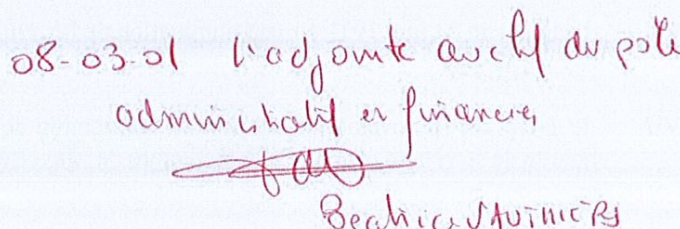 08-03-01 L'adjointe au chef du pôle
administratif et financier
Béatrice